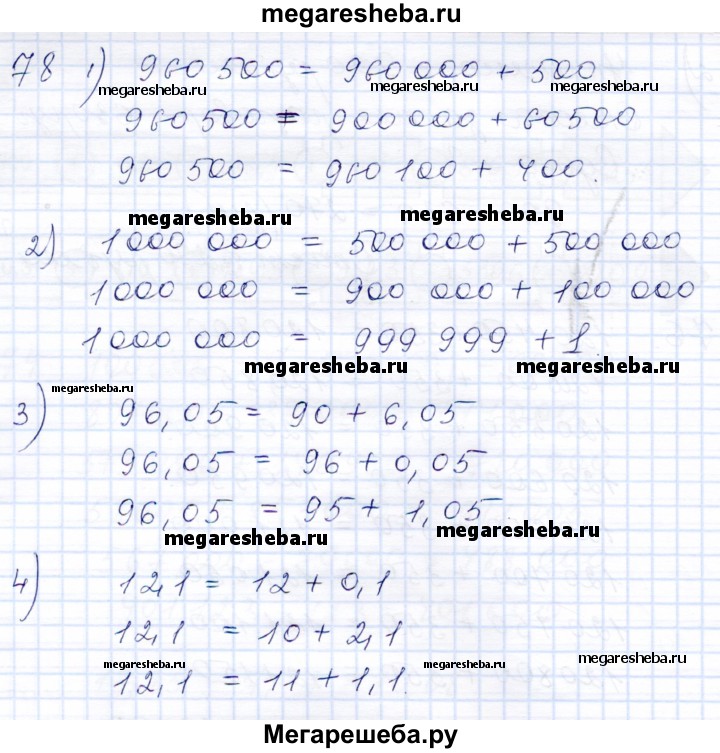 megaresheba.ru
78 1) 960 500 = 960 000 + 500
megaresheba.ru megaresheba.ru megaresheba.ru
960 500 = 900 000 + 60 500
960 500 = 960 100 + 400.
megaresheba.ru megaresheba.ru
2) 1 000 000 = 500 000 + 500 000
1 000 000 = 900 000 + 100 000
1 000 000 = 999 999 + 1.
megaresheba.ru megaresheba.ru
megaresheba.ru
3) 96,05 = 90 + 6,05
96,05 = 96 + 0,05
96,05 = 95 + 1,05.
megaresheba.ru megaresheba.ru
4) 12,1 = 12 + 0,1
12,1 = 10 + 2,1
megaresheba.ru megaresheba.ru megaresheba.ru
12,1 = 11 + 1,1.
Мегарешеба.ру